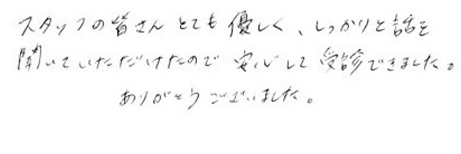 スタッフの皆さん とても優しく、しっかりと話を
聞いていただけたので 安心して受診できました。
ありがとうございました。